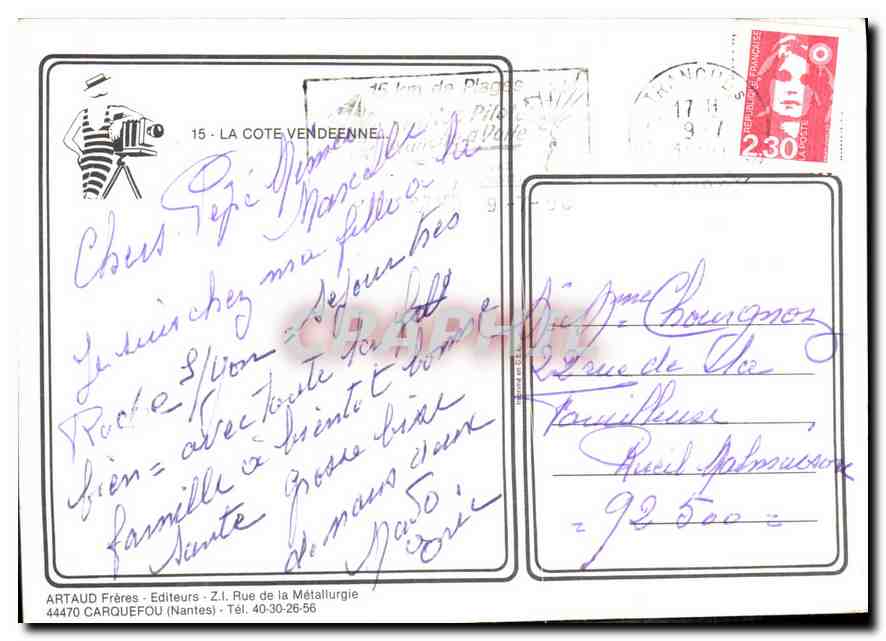 15 - LA COTE VENDEENNE...
15 km de Plages
17 H
9 7
RÉPUBLIQUE FRANÇAISE
LA POSTE
2.30
Chers Pépé Mémé
Marcelle
Je suis chez ma fille a la
Roche S/Yon = séjour tres
bien = avec toute la
famille a bientot bonne
Sante grosse bise
de nous deux
Mado
CPAPHIL
Mme Chourgnoz
22 rue de la
Fouilleuse
Rueil Malmaison
= 92 500 =
Imprimé en C.E.E.
ARTAUD Frères - Editeurs - Z.I. Rue de la Métallurgie
44470 CARQUEFOU (Nantes) - Tél. 40-30-26-56